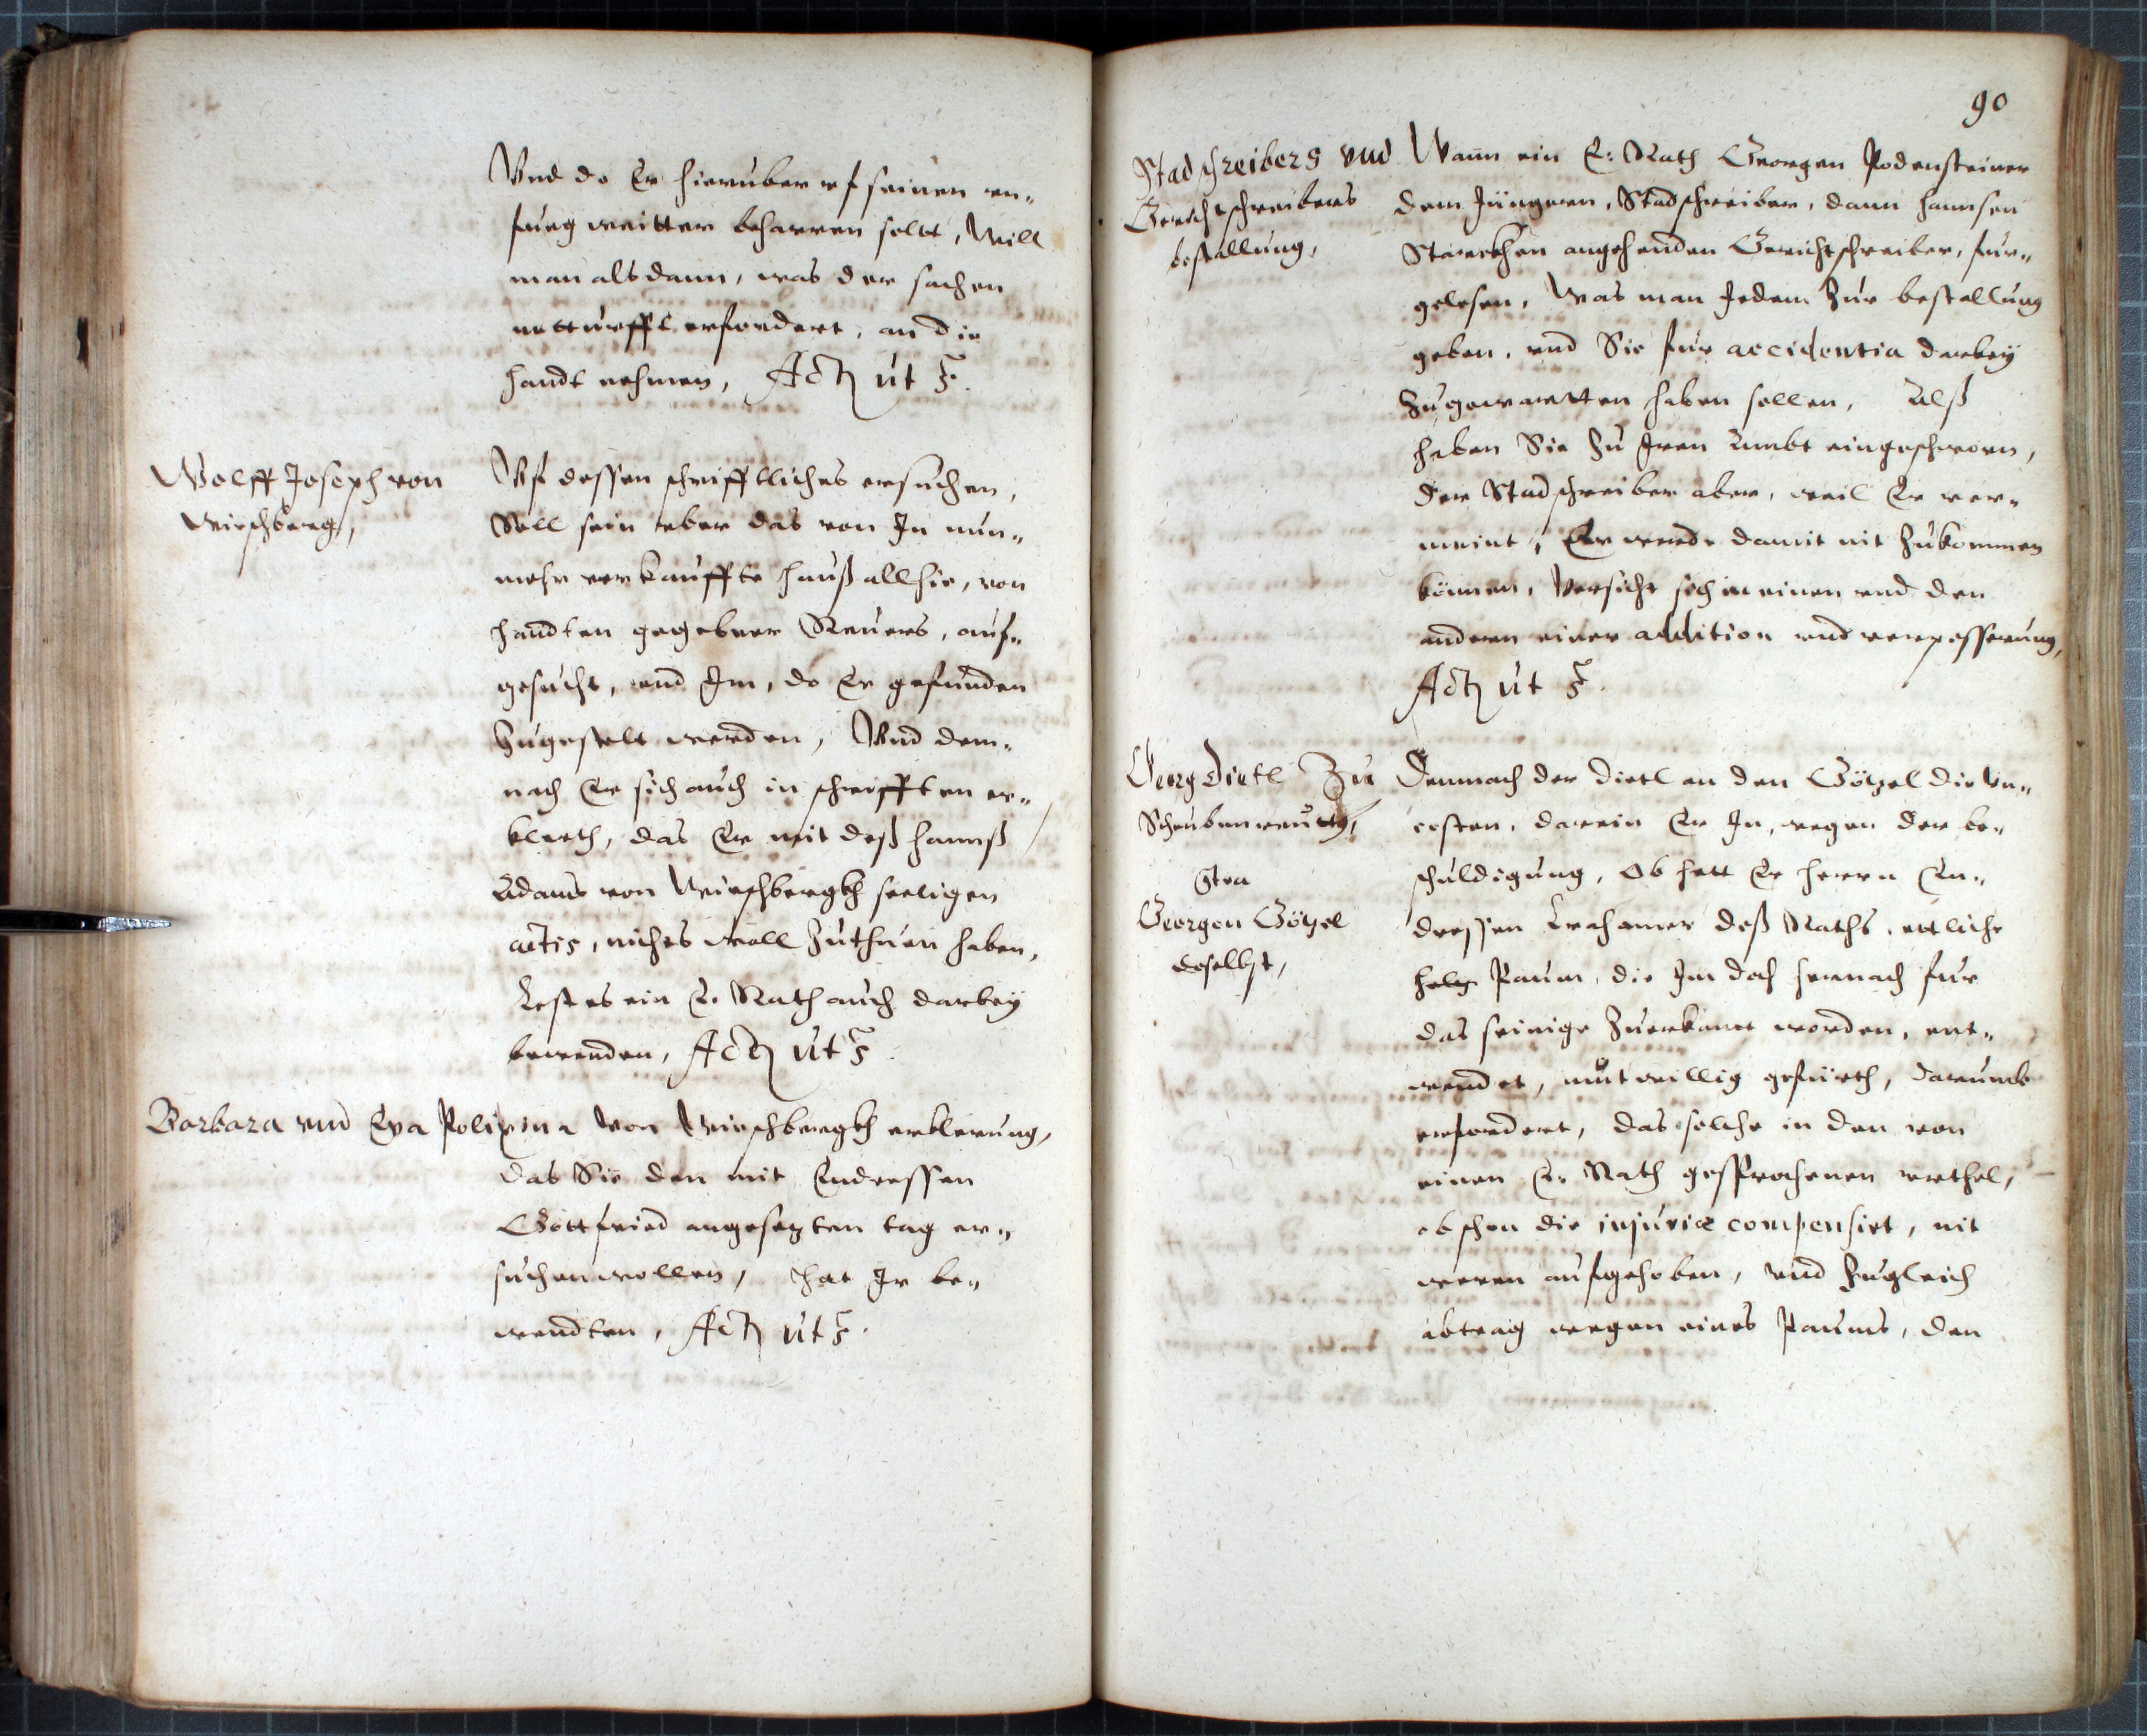 Vnd do Er hieruber vf seinen vn„
fueg weitter beharren solt, Will
man alsdann, was der sachen
notturfft erfordert, an die
handt nehmen, Actum ut s.
Wolff Joseph von
Wirschberg,
Vf dessen schrifftliches ersuchen,
Soll sein vber das von Im nun„
mehr verkauffte hauß allhie, von
handten gegebner Reuers, auf„
gesucht, vnd Im, do Er gefunden
Zugestelt werden, Vnd dem„
nach Er sich auch in schrifften er„
klerth, das Er mit deß Hannß
Adams von Wirschbergkh seeligen
actis, nichts woll Zuthuen haben,
Lest es ein E. Rath auch darbey
bewenden, Actum ut s.
Barbara vnd Eva Polixina von Wirschbergkh erklerung,
das Sie den mit Endressen
Gottfried angesezten tag er„
suchen wollen, hat Ir be„
wendten, Actum ut s.
90
Stadschreibers vnd
Gerichtschreibers
bestallung,
Wann ein E: Rath Georgen Podensteiner
dem Jüngern, Stadschreiber, dann Hannsen
Starckhen angehenden Gerichtschreiber, fur„
gelesen, Was man Jedem Zur bestallung
geben, vnd Sie fur accidentia darbey
Zugewartten haben sollen, Alß
haben Sie Zu Iren Ambt eingeschworn,
der Stadschreiber aber, weil Er ver„
meint, Er werde damit nit Zukommen
können, Versicht sich in einen vnd den
andern einer addition vnd verpesserung,
Actum ut s.
Georg Dietl Zu
Scheubenreutth,
Gtra
Georgen Götzel
doselbst,
Demnach der Dietl an den Götzel die vn„
costen, darein Er In, wegen der be„
schuldigung, Ob hett Er Herrn En„
dressen deß Raths, ettliche
Paum, die Im doch hernach fur
das seinige Zuerkant worden, ent„
wendet, mutwillig gefürth, darumb
erfordert, das solche in den von
einen E. Rath gesprochenen vrthel,
ob schon die injuriæ compensirt, nit
weren aufgehoben, vnd Zugleich
abtrag wegen eines Paums, den